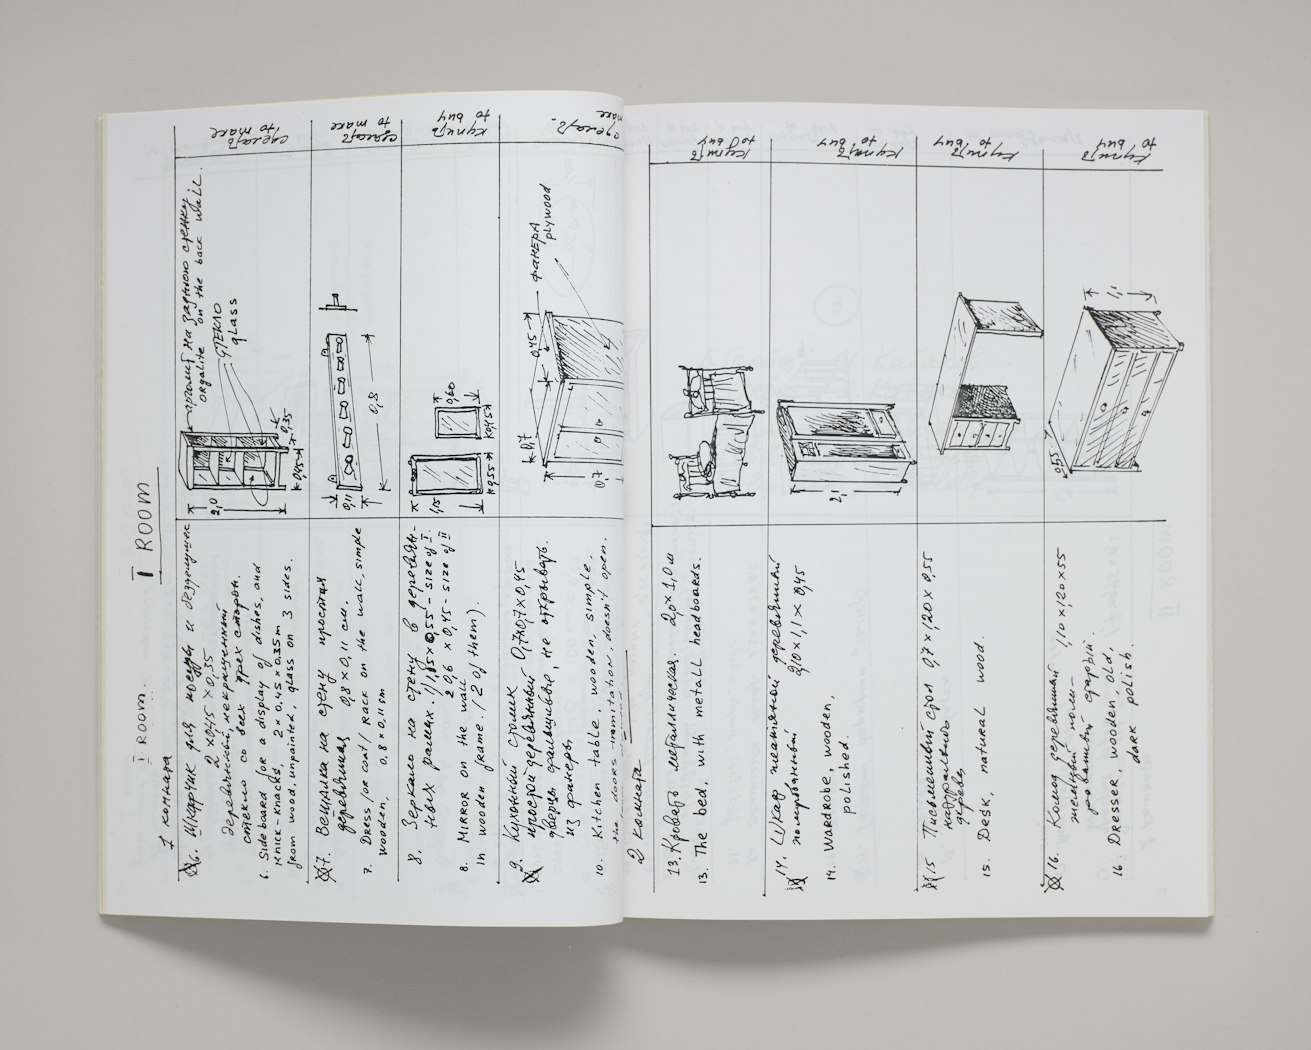 I ROOM
I ROOM.
1 комната
6. Шкафчик для посуды и безделушек
2 x 0,45 x 0,35
деревянный, некрашенный
стекло со всех трех сторон.
6. Sideboard for a display of dishes, and
knick-knacks, 2 x 0.45 x 0.35 m
from wood, unpainted, glass on 3 sides.
оргалит на заднюю стенку
orgalite on the back wall.
стекло
glass
2,0
0,45
0,35
сделать
to make
7. Вешалка на стену простая
деревянная 0,8 x 0,11 см.
7. Dress/or coat/ rack on the wall, simple
wooden, 0.8 x 0.11 sm
0,11
0,8
сделать
to make
8. Зеркало на стену в деревян-
ных рамах. 1/1,15 x 0,55 - size of I.
2 0,6 x 0,45 - size of II
8. Mirror on the wall
in wooden frame. /2 of them).
1,15
0,55
0,60
0,45
купить
to buy
9. Кухонный столик 0,7x0,7x0,45
простой деревянный
дверцы фальшивые, не открывать.
из фанеры
10. Kitchen table, wooden, simple.
the doors - imitation, doesn't open.
0,7
0,7
0,45
фанера
plywood
сделать.
make
2 комната
13. Кровать металлическая. 2,0 x 1,0 м
13. The bed, with metall headboards.
купить
to buy
14. Шкаф платяной деревянный
полированный 2,10 x 1,1 x 0,45
14. Wardrobe, wooden,
polished.
2,1
купить
to buy
15 Письменный стол 0,7 x 1,20 x 0,55
натуральное
дерево
15. Desk, natural wood
купить
to buy
16. Комод деревянный 1,10 x 1,20 x 55
темный поли-
рованный старый.
16. Dresser, wooden, old,
dark polish.
0,55
1,1
купить
to buy